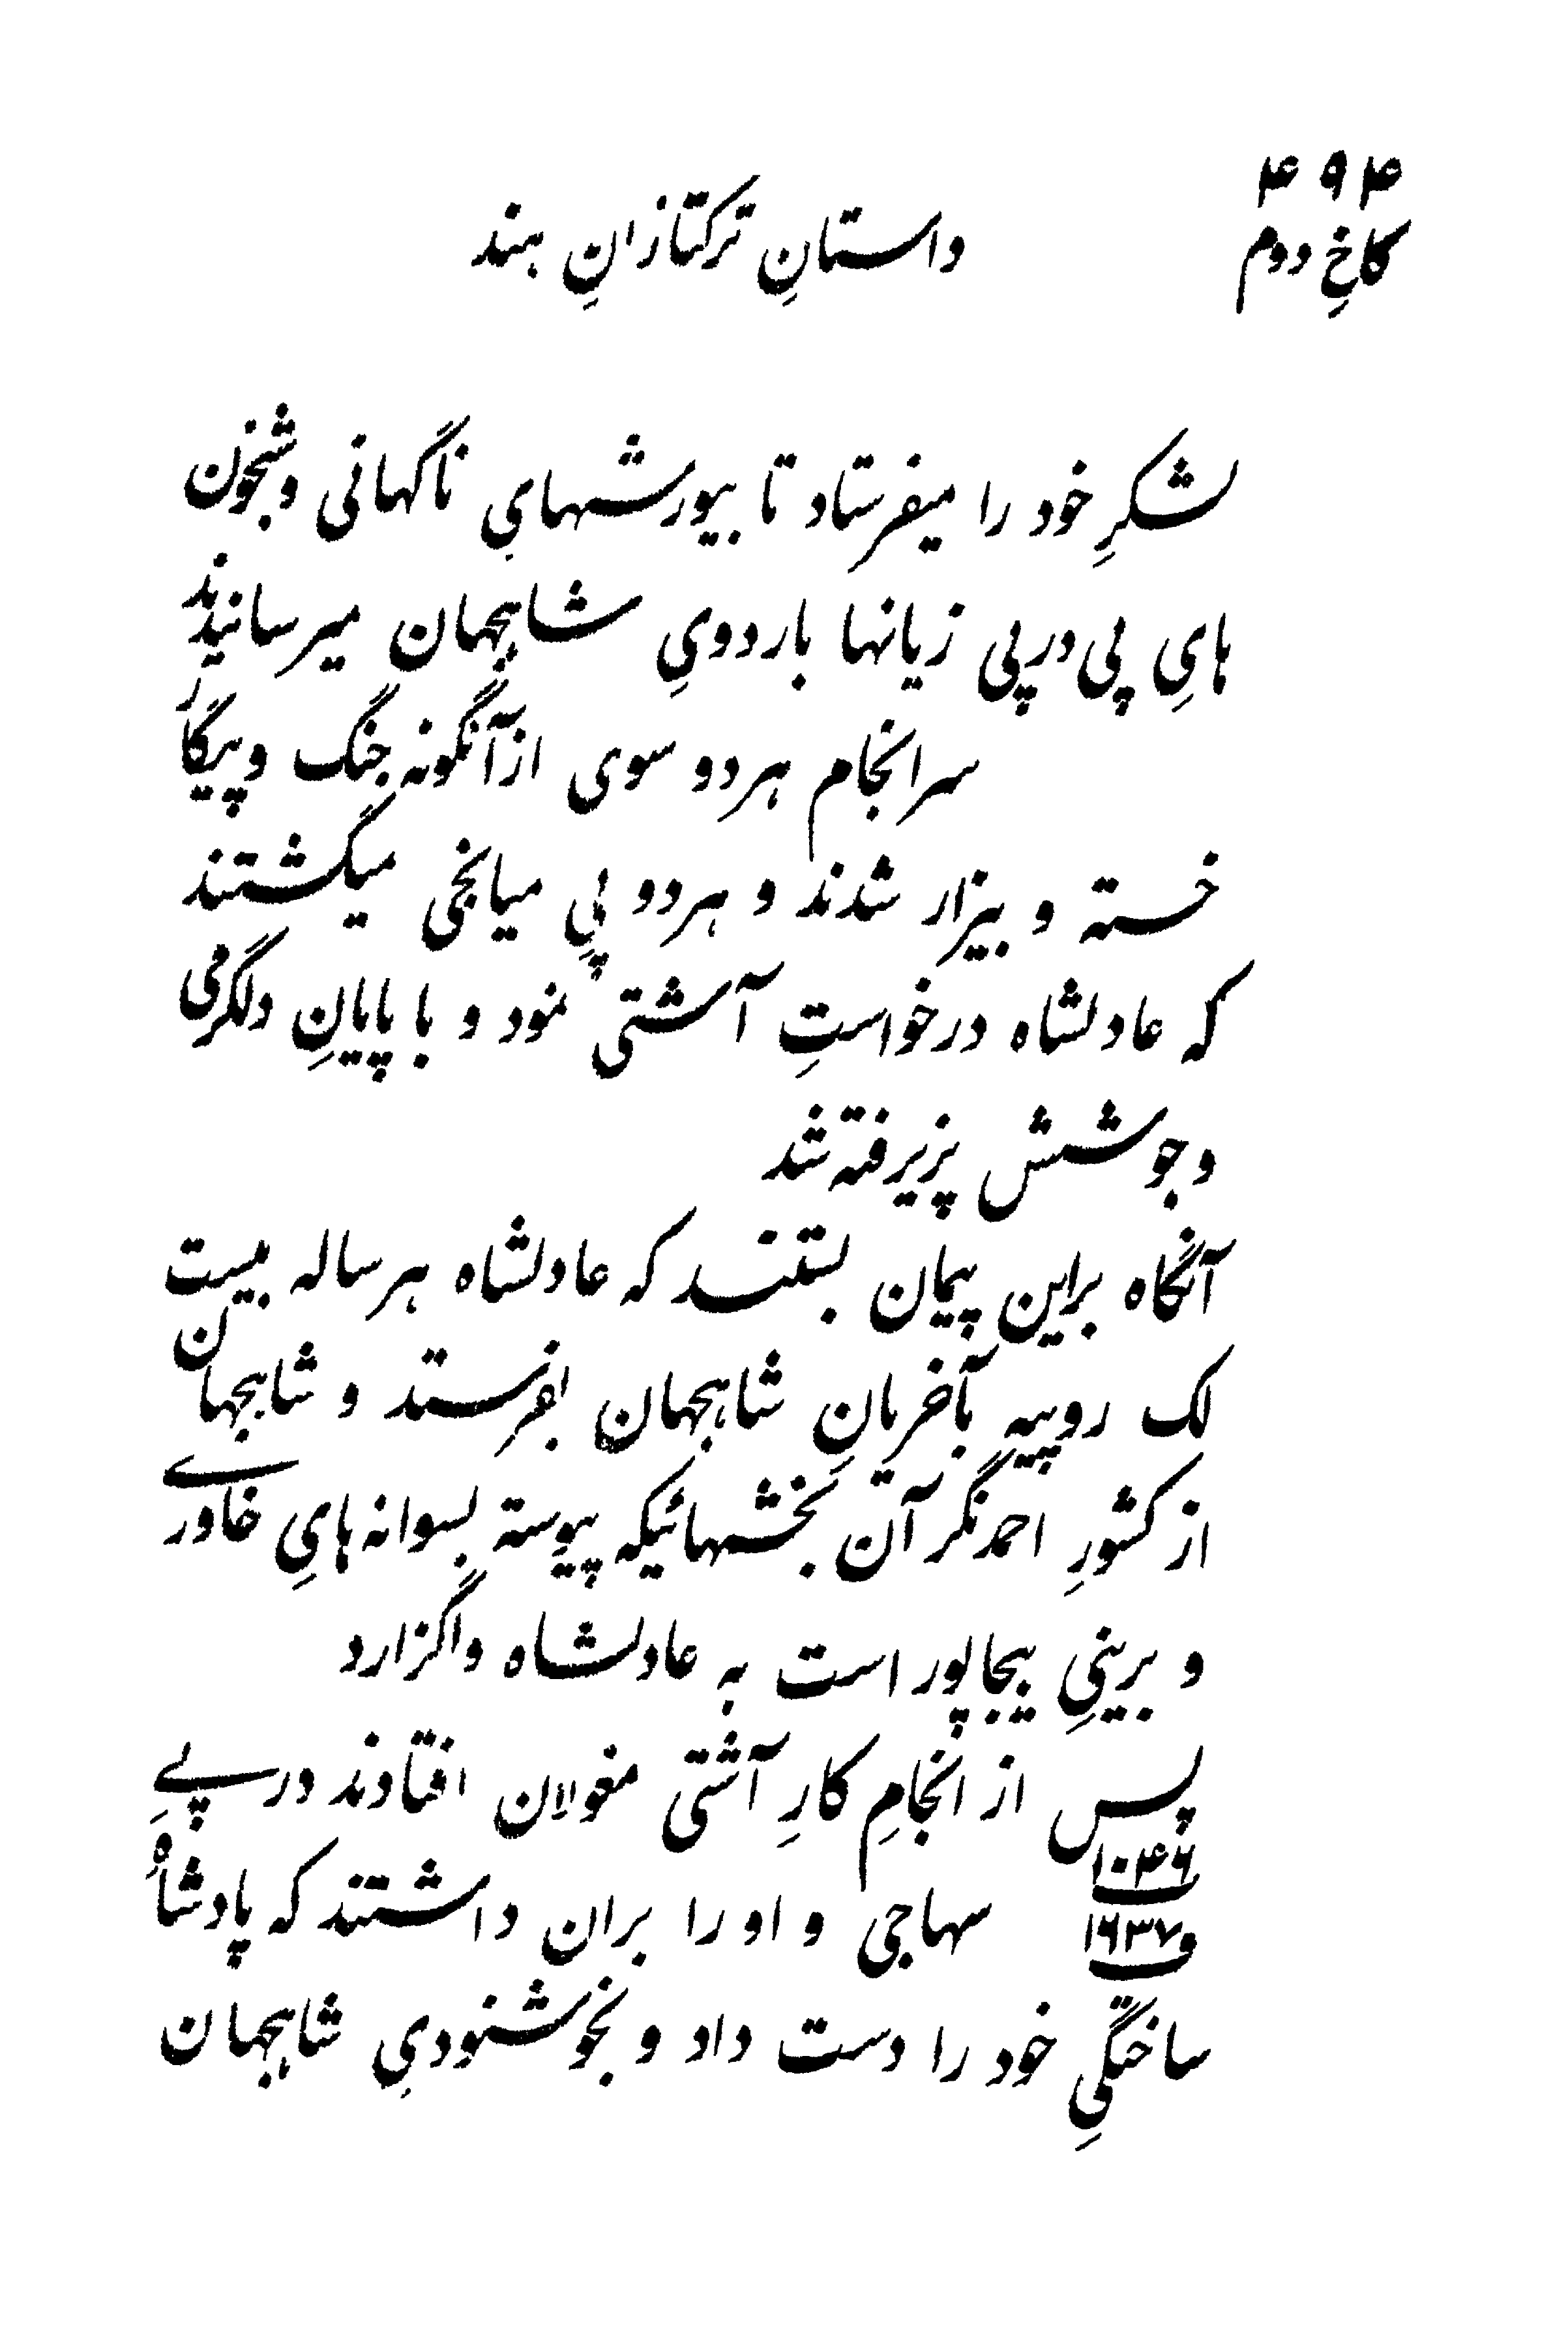 ۴۹۴
کاخِ دوم
داستانِ ترکتازانِ هند
لشکرِ خود را میفرستاد تا بیورشهایِ ناگهانی و شبخون
هایِ پی در پی زیانها باردویِ شاهجهان میرسانیدند
سرانجام هر دو سوی ازآنگونه جنگ و پیکار
خسته و بیزار شدند و هر دو پیِ میانجی میگشتند
که عادلشاه درخواستِ آشتی نمود و با پایانِ دلگرمی
و جوشش پزیرفته شد
آنگاه براین پیمان بستند که عادلشاه هر ساله بیست
لک روپیه بآخریانِ شاهجهان بفرستد و شاهجهان
از کشورِ احمدنگر آن بخشهائیکه پیوسته بسوانه‌هایِ خاوری
و برینیِ بیجاپور است به عادلشاه واگزارد
پس از انجامِ کارِ آشتی مغولان افتادند در پیِ
۱۰۴۶
سهاجی و او را بران داشتند که پادشاه
و ۱۶۳۷
ساختگیِ خود را دست داد و بخوشنودیِ شاهجهان